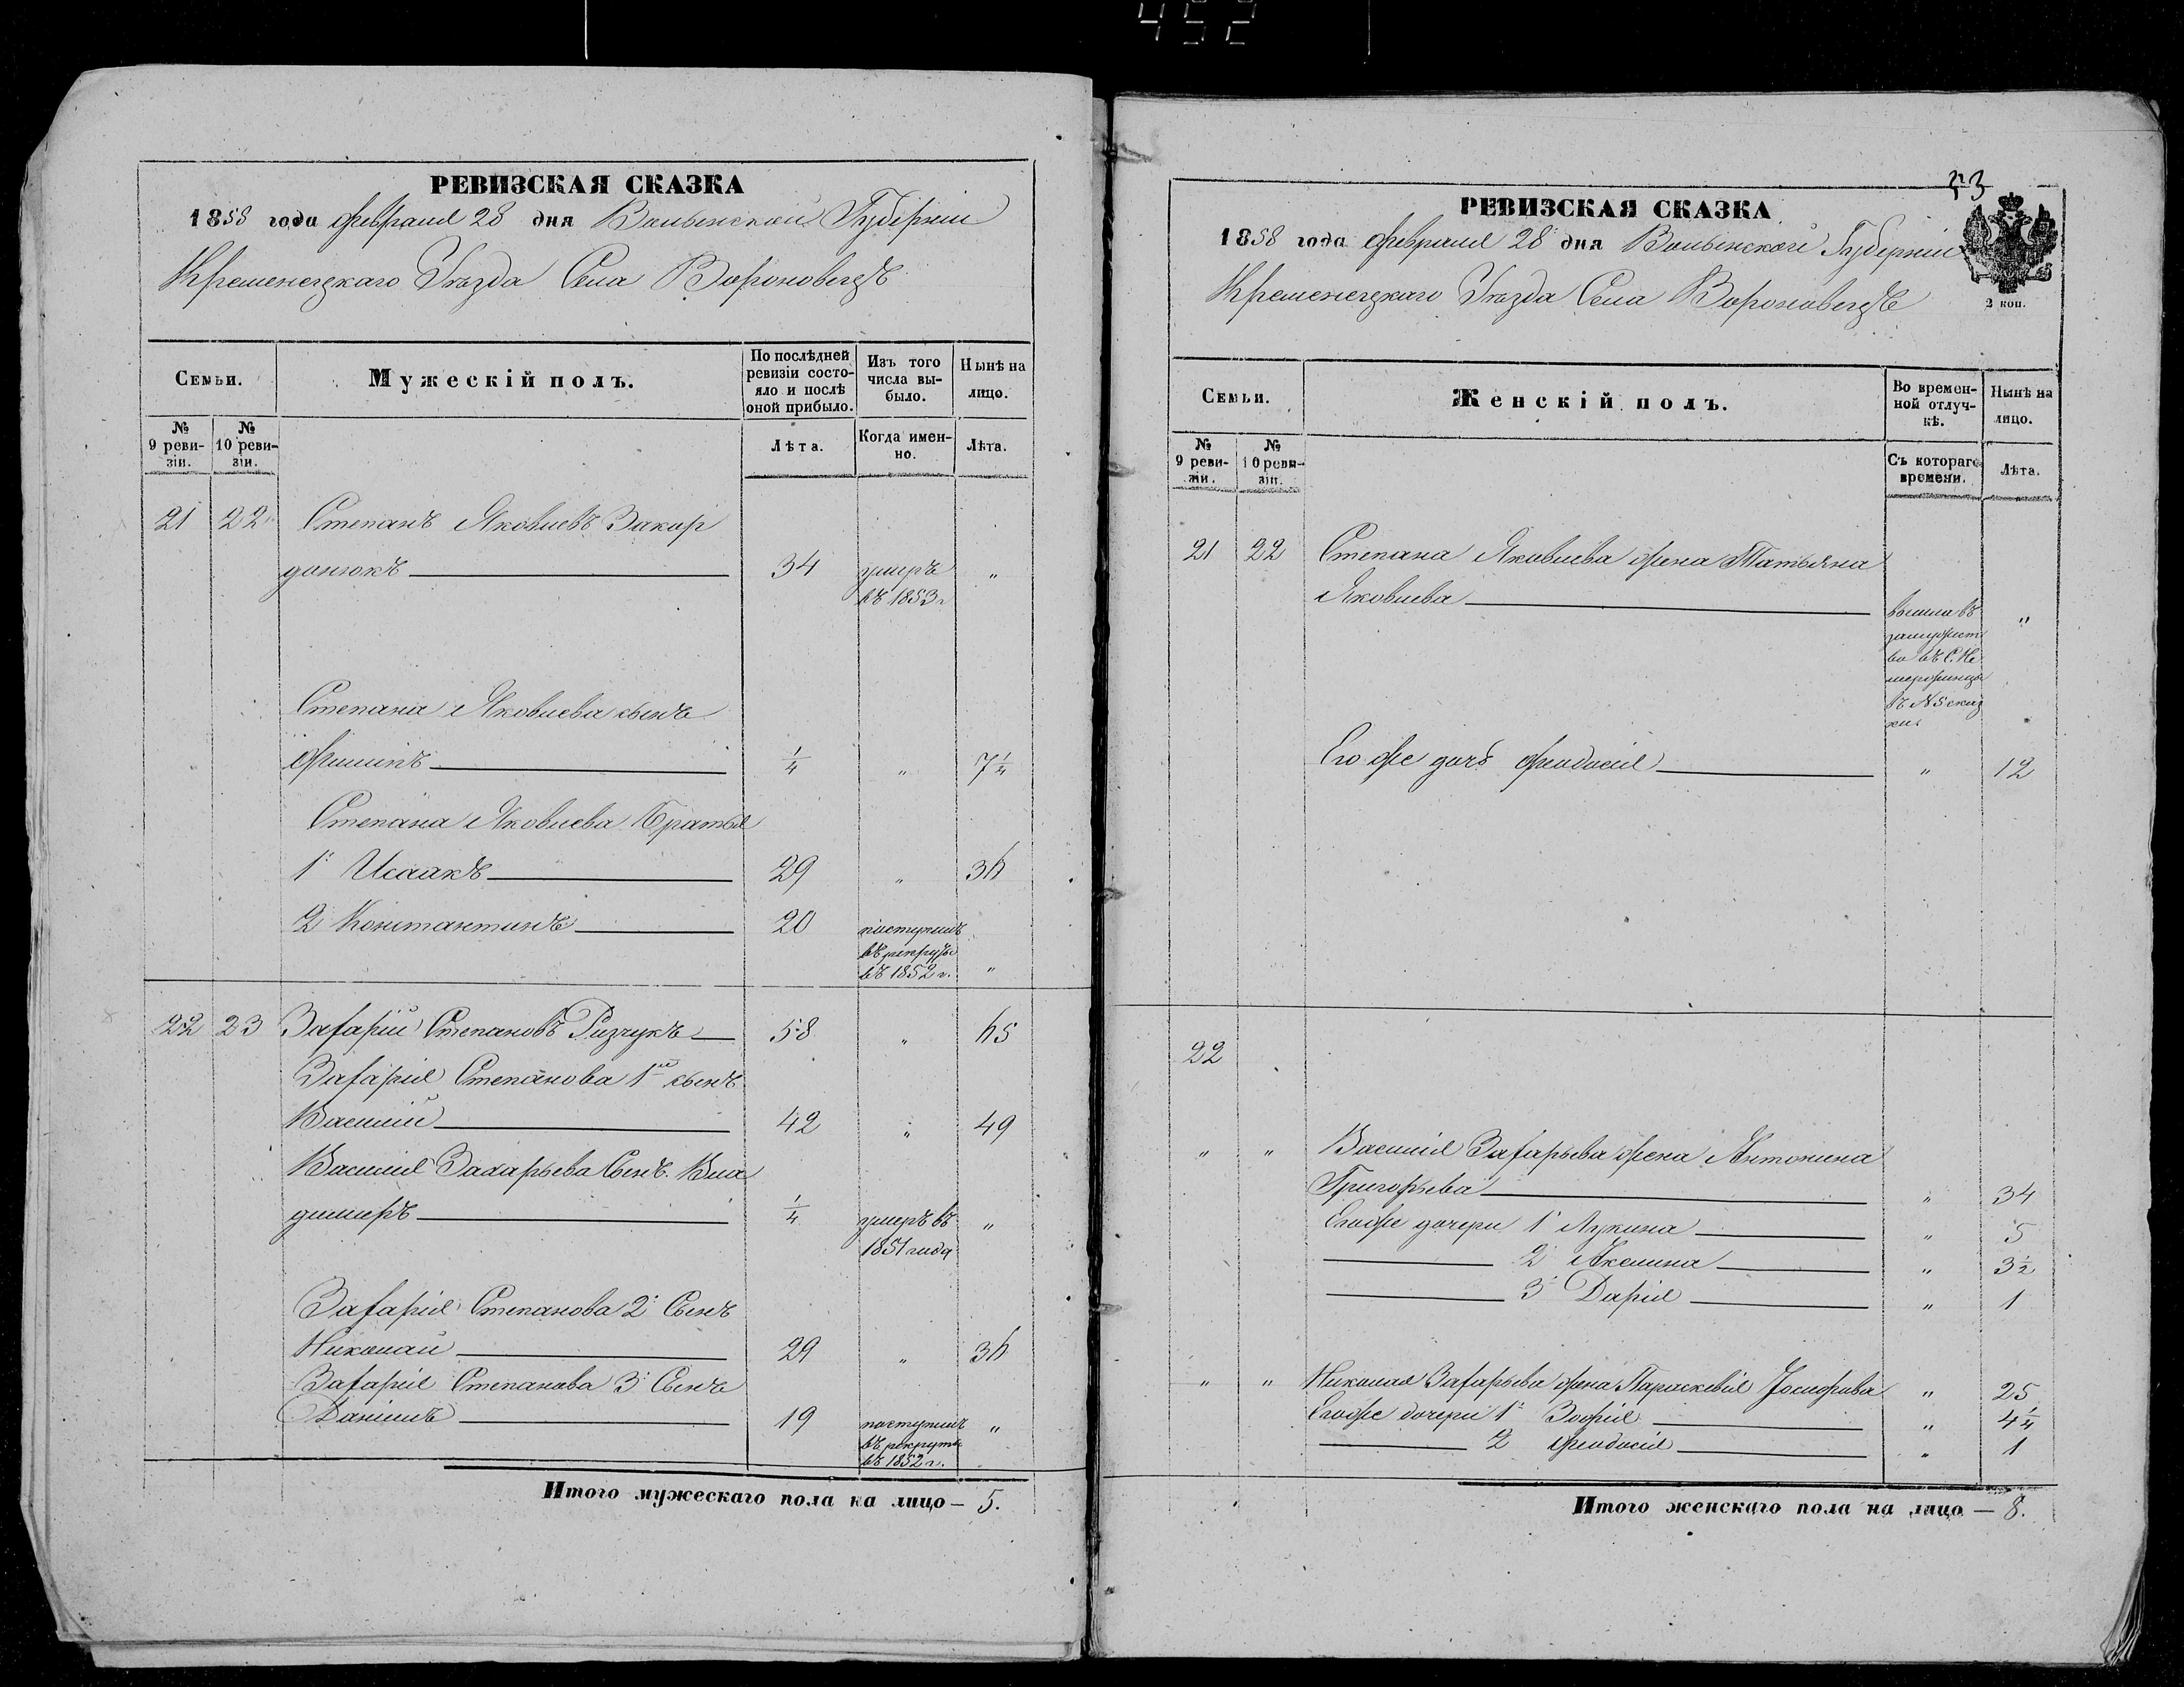 452
РЕВИЗСКАЯ СКАЗКА
1858 года февраля 28 дня Волынской Губерніи
Кременецкаго Уѣзда Села Вороновецъ
Семьи.
Мужескій полъ.
По послѣдней ревизіи состояло и послѣ оной прибыло.
Изъ того числа выбыло.
Нынѣ на лицо.
№ 9 ревизіи.
№ 10 ревизіи.
Лѣта.
Когда именно.
Лѣта.
21 22 Степанъ Яковлевъ Закор
донюкъ 34 умеръ въ 1853 г. "
Степана Яковлева сынъ
Филипъ 1/4 " 7 1/4
Степана Яковлева Братья
1й Исаакъ 29 " 36
2 Константинъ 20 поступилъ въ рекруты въ 1852 г. "
22 23 Захарій Степановъ Ризчукъ 58 " 65
Захарія Степанова 1й сынъ
Василій 42 " 49
Василія Захарьева Сынъ Вла
димиръ 1/4 умеръ въ 1851 года "
Захарія Степанова 2й Сынъ
Николай 29 " 36
Захарія Степанова 3й Сынъ
Данилъ 19 поступилъ въ рекруты въ 1852 г. "
Итого мужескаго пола на лицо — 5.
53
РЕВИЗСКАЯ СКАЗКА
1858 года февраля 28 дня Волынской Губерніи
Кременецкаго Уѣзда Села Вороновецъ
2 коп.
Семьи.
Женскій полъ.
Во временной отлучкѣ.
Нынѣ на лицо.
№ 9 ревизіи.
№ 10 ревизіи.
Съ котораго времени.
Лѣта.
21 22 Степана Яковлева жена Татьяна
Яковлева вышла въ "
замужест
во въ С.
въ №5 сказ
ки
Его же дочь Феодосія " 12
22
" " Василія Захарьева жена Антонина
Григорьева " 34
Его же дочери 1 Лукина " 5
2 Акелина " 3 1/2
3 Дарія " 1
" " Николая Захарьева жена Параскевія Іосифова " 25
Его же дочери 1й Зофія " 4 1/4
2 Феодосія " 1
Итого женскаго пола на лицо — 8.